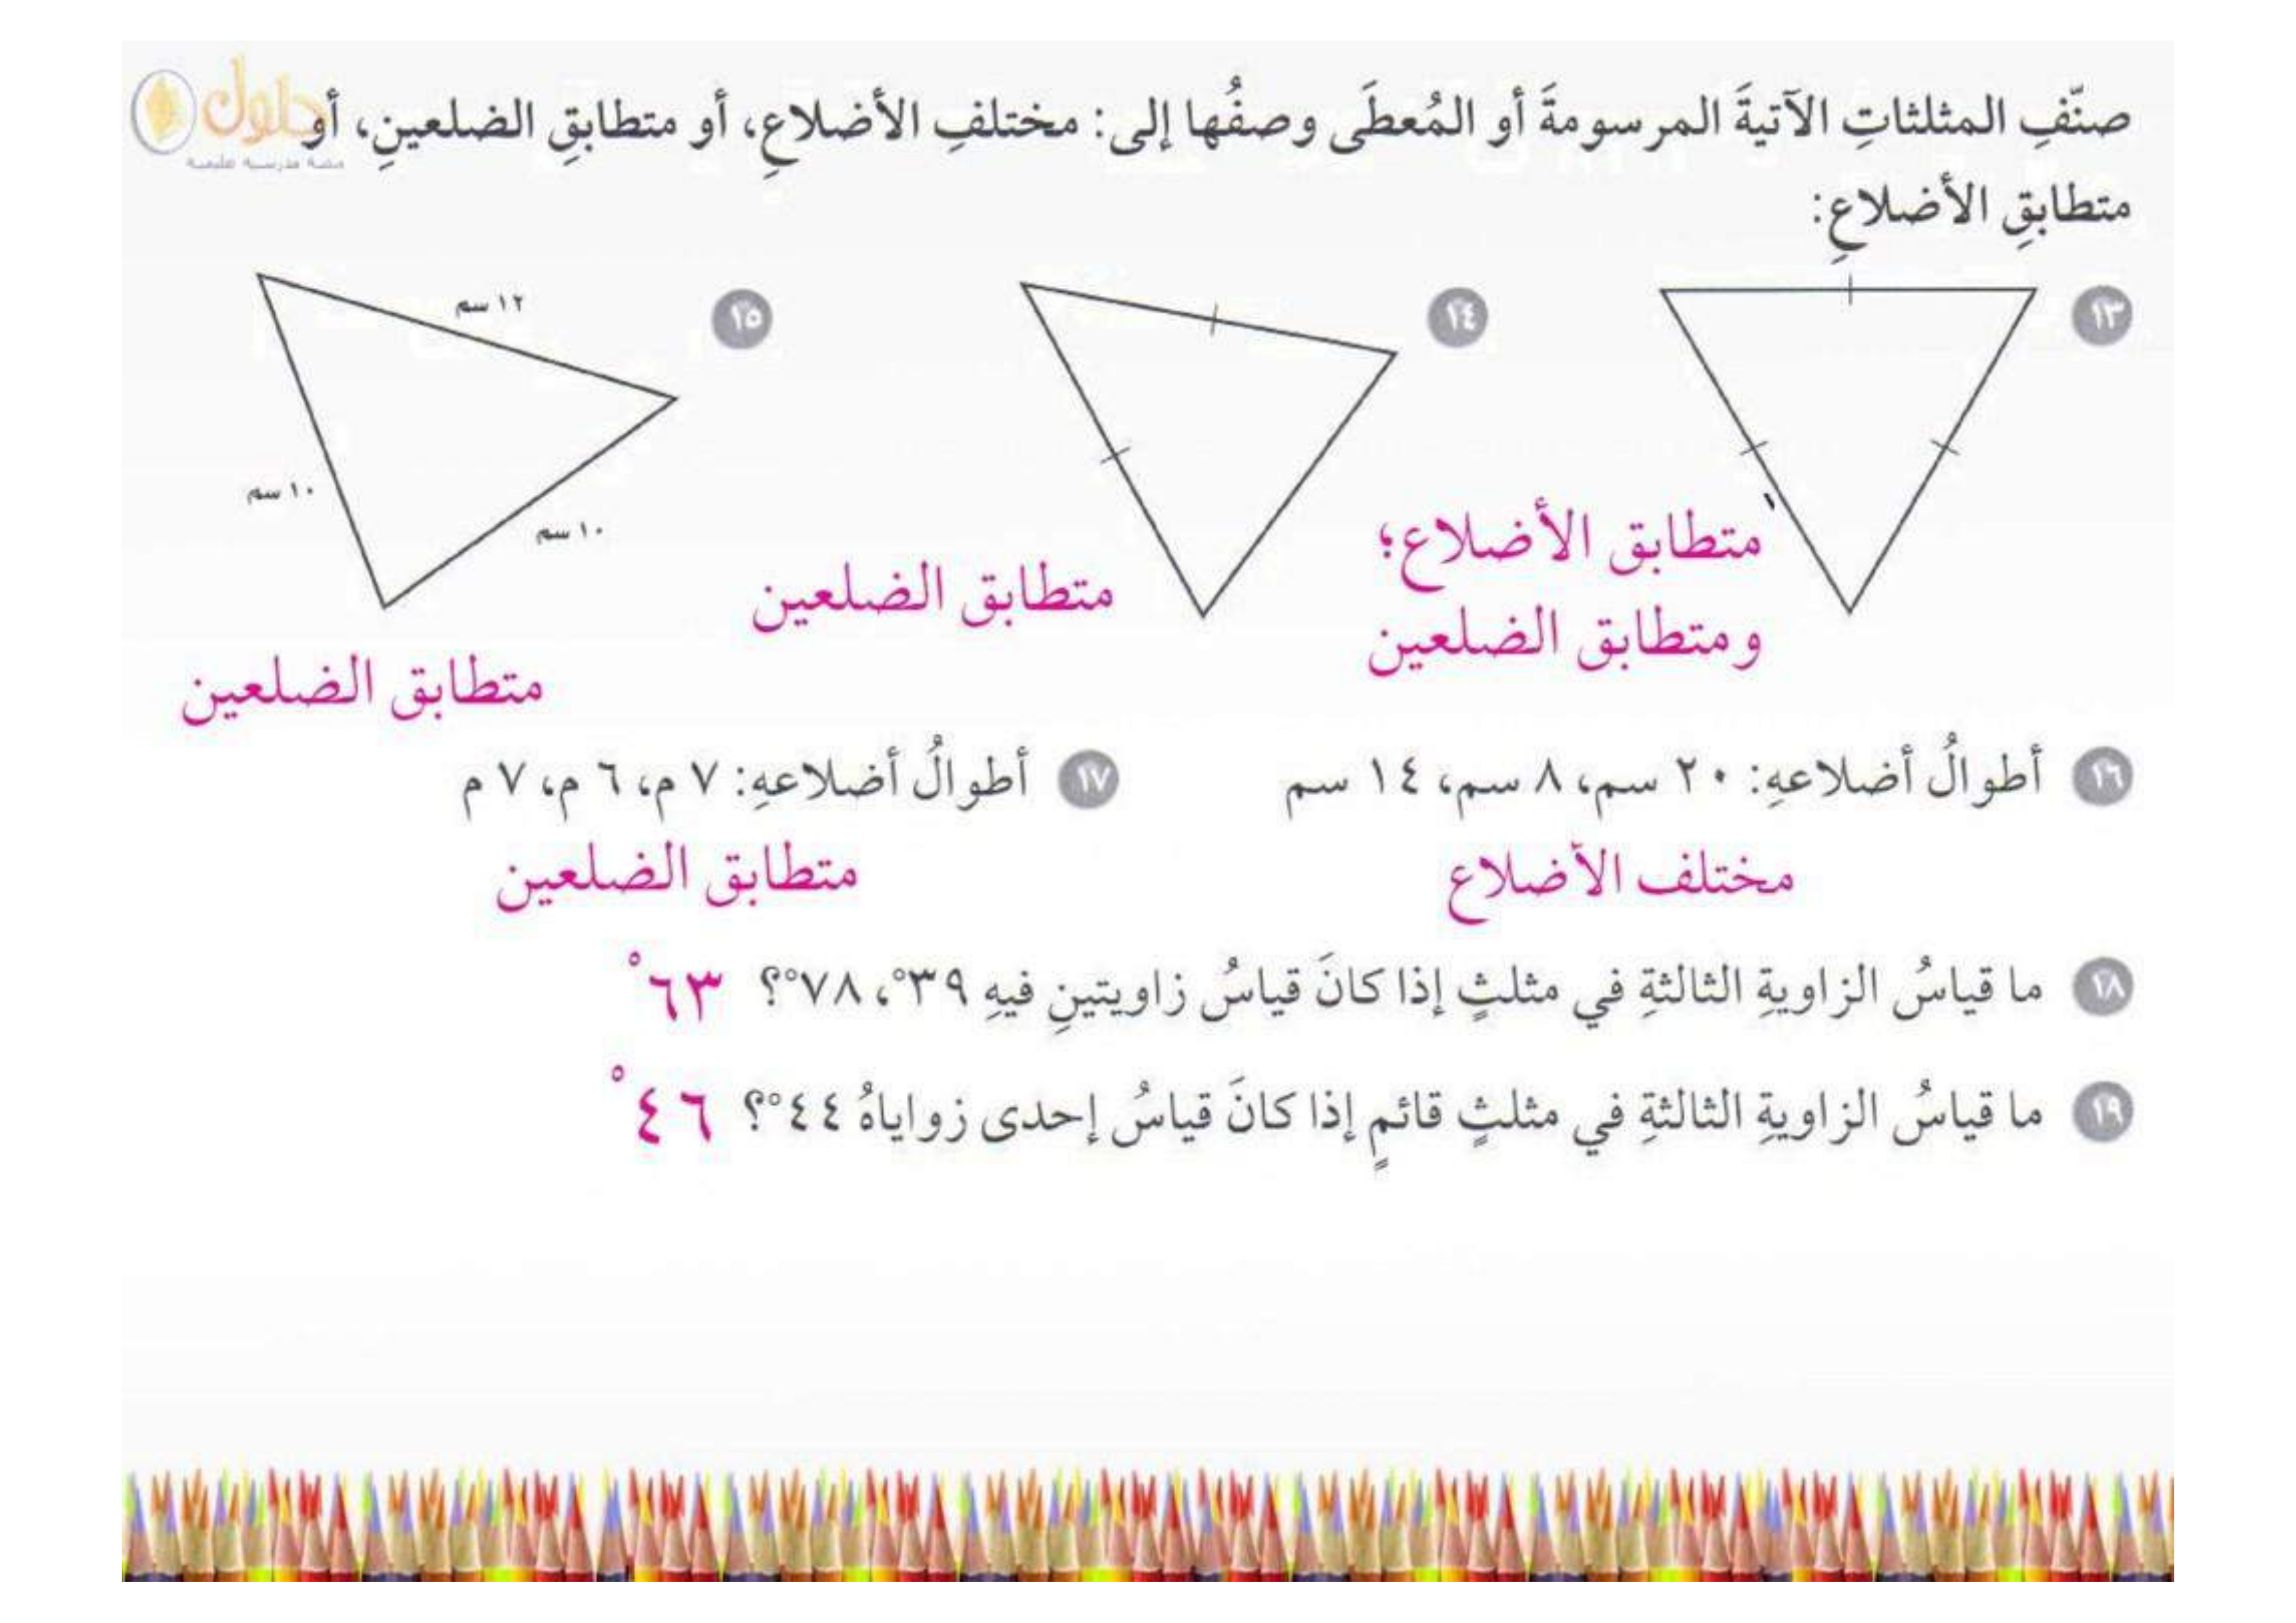 حلول
منصة مدرستي التعليمية
صنّفِ المثلثاتِ الآتيةَ المرسومةَ أو المُعطَى وصفُها إلى: مختلفِ الأضلاعِ، أو متطابقِ الضلعينِ، أو
متطابقِ الأضلاعِ:
١٣
١٤
١٥
١٢ سم
١٠ سم
١٠ سم
متطابق الأضلاع؛
ومتطابق الضلعين
متطابق الضلعين
متطابق الضلعين
١٦ أطوالُ أضلاعهِ: ٢٠ سم، ٨ سم، ١٤ سم
١٧ أطوالُ أضلاعهِ: ٧ م، ٦ م، ٧ م
مختلف الأضلاع
متطابق الضلعين
١٨ ما قياسُ الزاويةِ الثالثةِ في مثلثٍ إذا كانَ قياسُ زاويتينِ فيهِ ٣٩°، ٧٨°؟ ٦٣°
١٩ ما قياسُ الزاويةِ الثالثةِ في مثلثٍ قائمٍ إذا كانَ قياسُ إحدى زواياهُ ٤٤°؟ ٤٦°